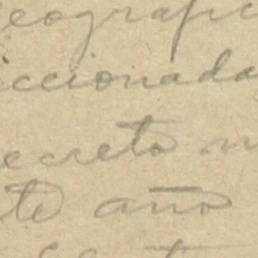 eografic
iccionada
ecreto n
te año